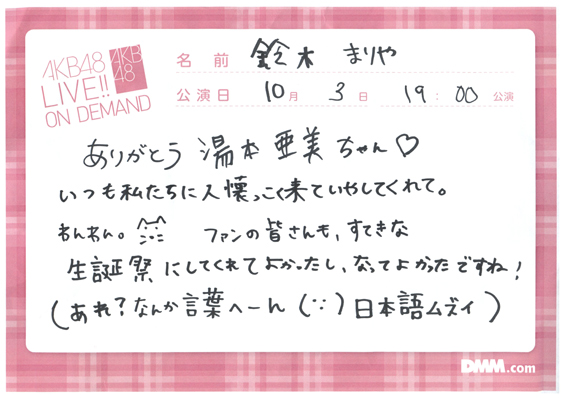 AKB48
LIVE!!
ON DEMAND
AKB
48
名前 鈴木 まりや
公演日 10月 3日 19:00 公演
ありがとう 湯本 亜美 ちゃん♡
いつも私たちに人懐っこく来ていやしてくれて。
わんわん。 ファンの皆さんも、すてきな
生誕祭にしてくれてよかったし、なってよかったですね!
(あれ?なんか言葉へーん (∵) 日本語ムズイ)
DMM.com